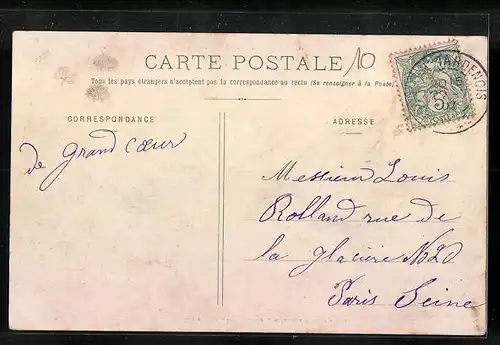 CARTE POSTALE
10
Tous les pays étrangers n'acceptent pas la correspondance au recto (Se renseigner à la Poste).
CORRESPONDANCE
ADRESSE
de Grand Cœur
Messieur Louis
Rolland rue de
la glacière No
Paris Seine
5